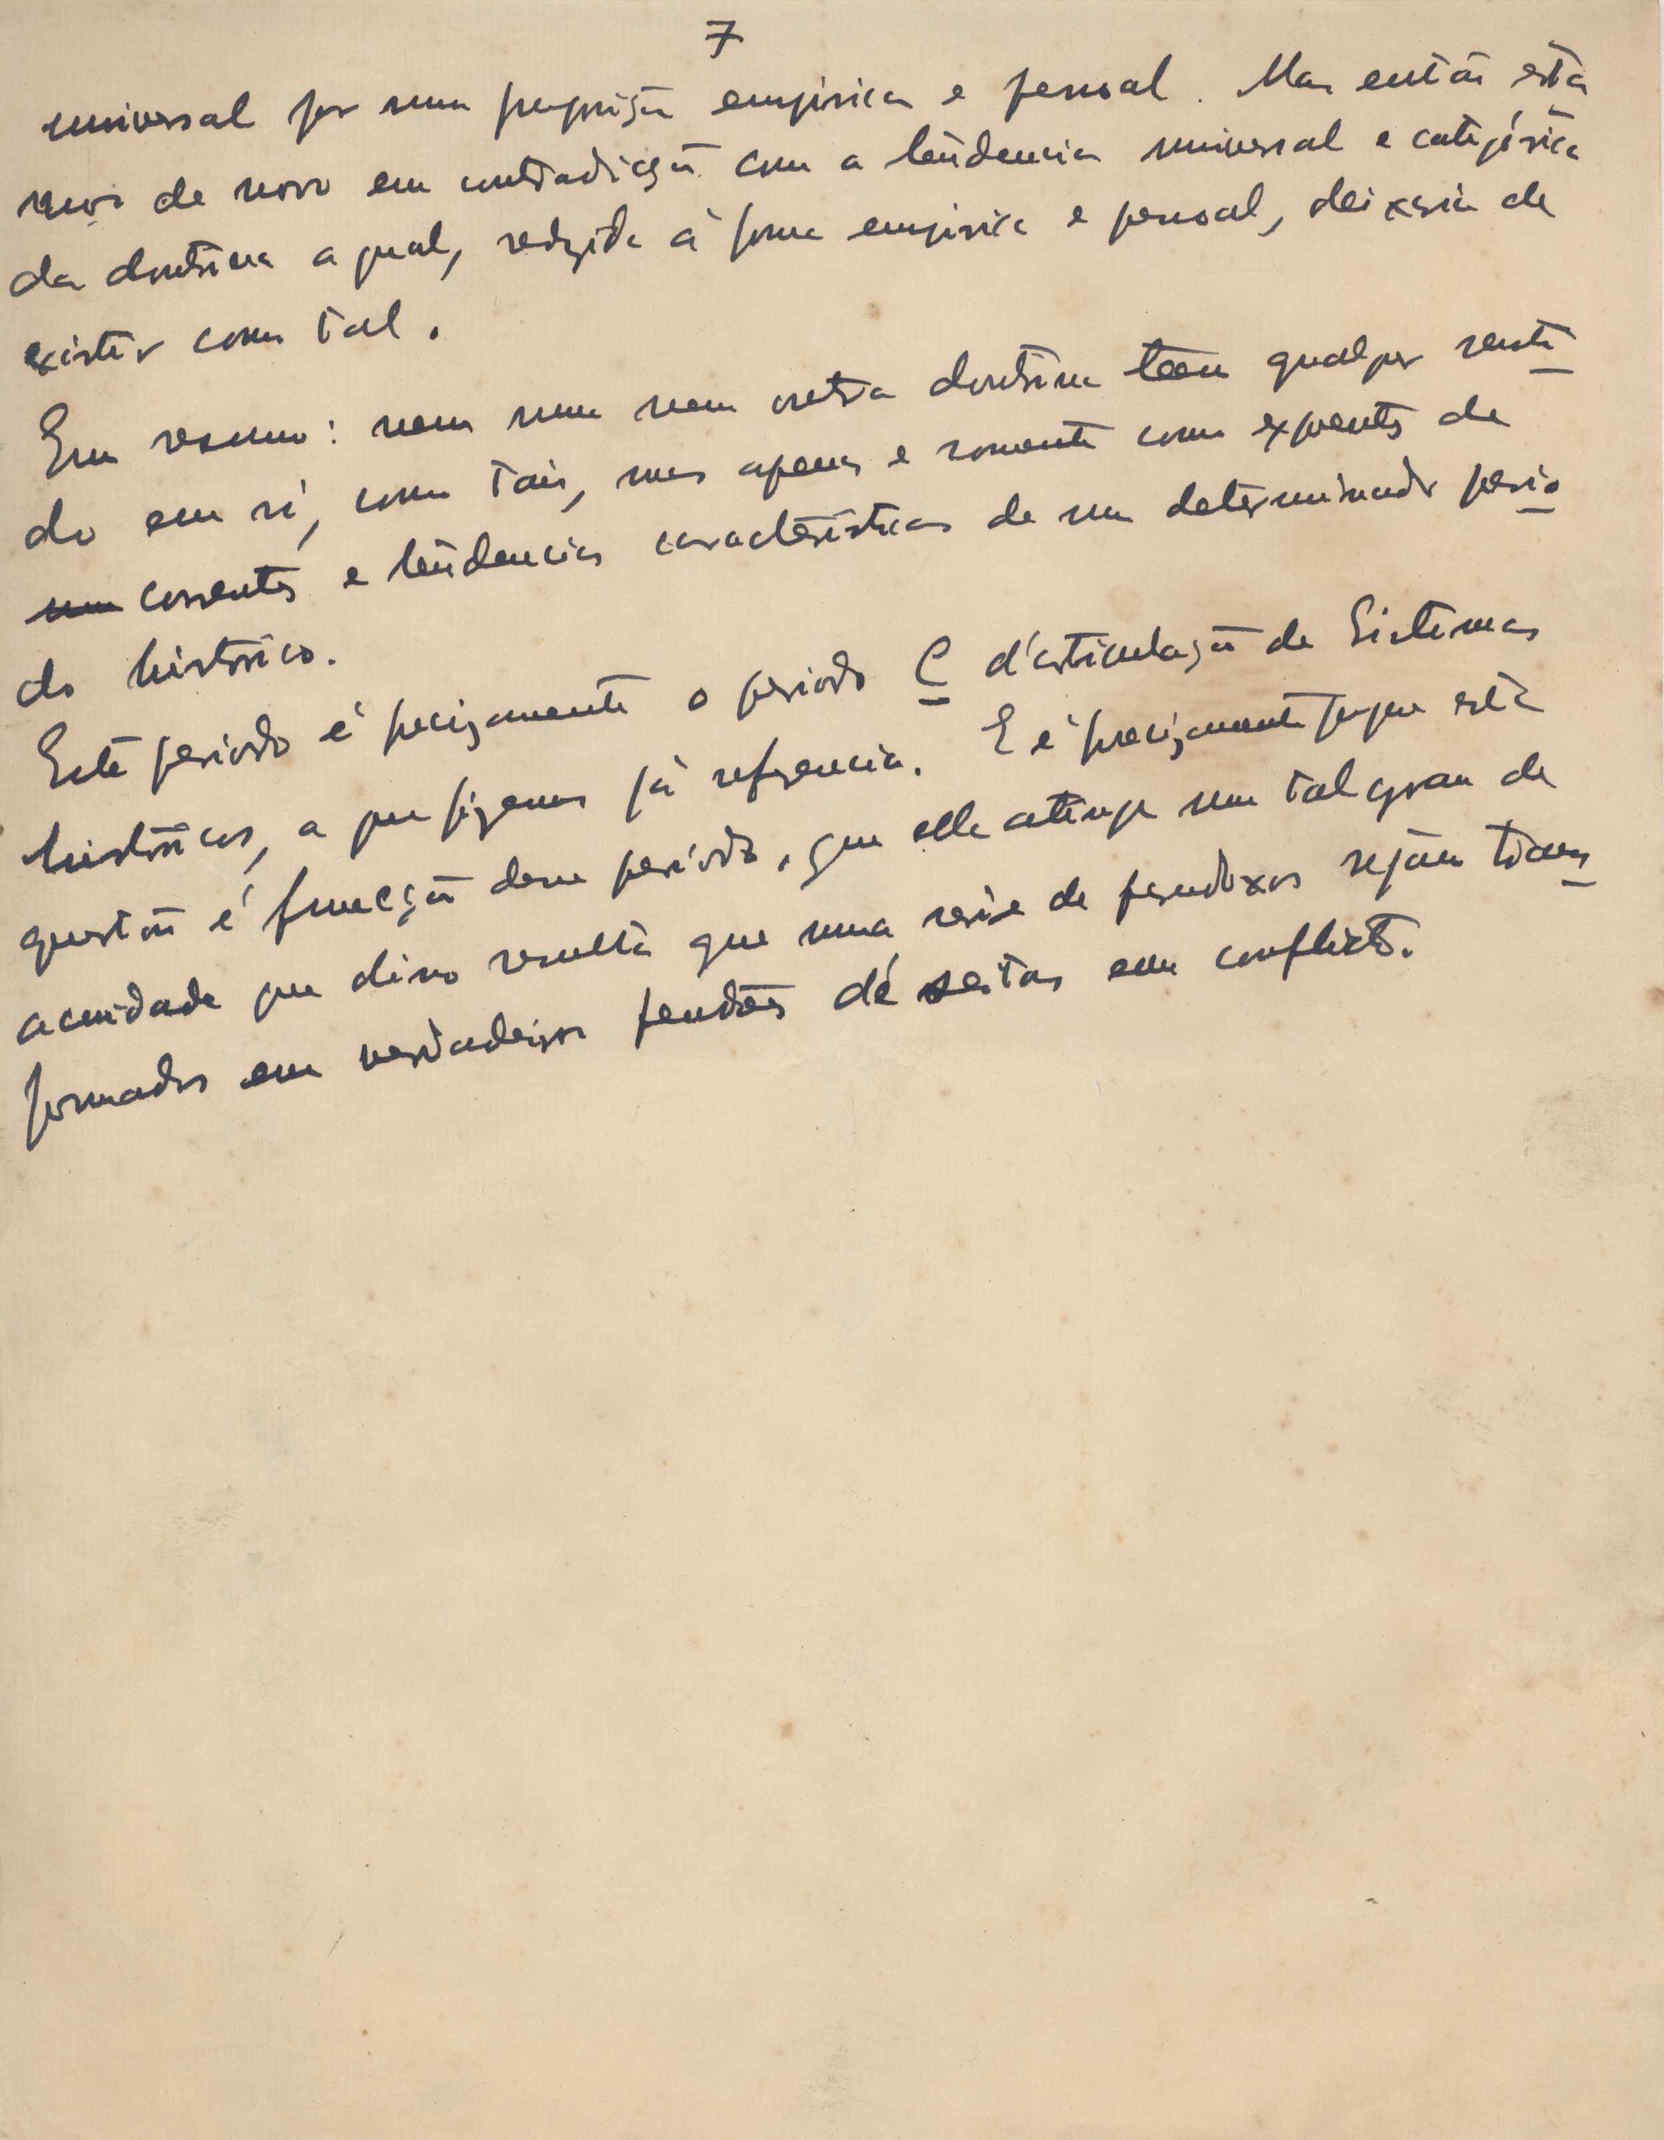 7
universal por uma proposição empirica e pessoal. Mas então esta
mos de novo em contradicção com a tendencia universal e categórica
da doutrina a qual, reduzida à forma empirica e pessoal, deixaria de
existir como tal.
Em resumo: nem uma nem outra doutrina teem qualquer senti
do em si, como tais, mas apenas e somente como expoentes de
correntes e tendencias caracteristicas de um determinado perio
do histórico.
Este periodo é precizamente o periodo C d'articulação de Sistemas
históricos, a que fizemos já referencia. E é precizamente porque esta
questão é funcção desse periodo, que ella atinge um tal grau de
acuidade que disso resulta que uma serie de paradoxos sejam trans
formados em verdadeiros pendões de seitas em conflicto.